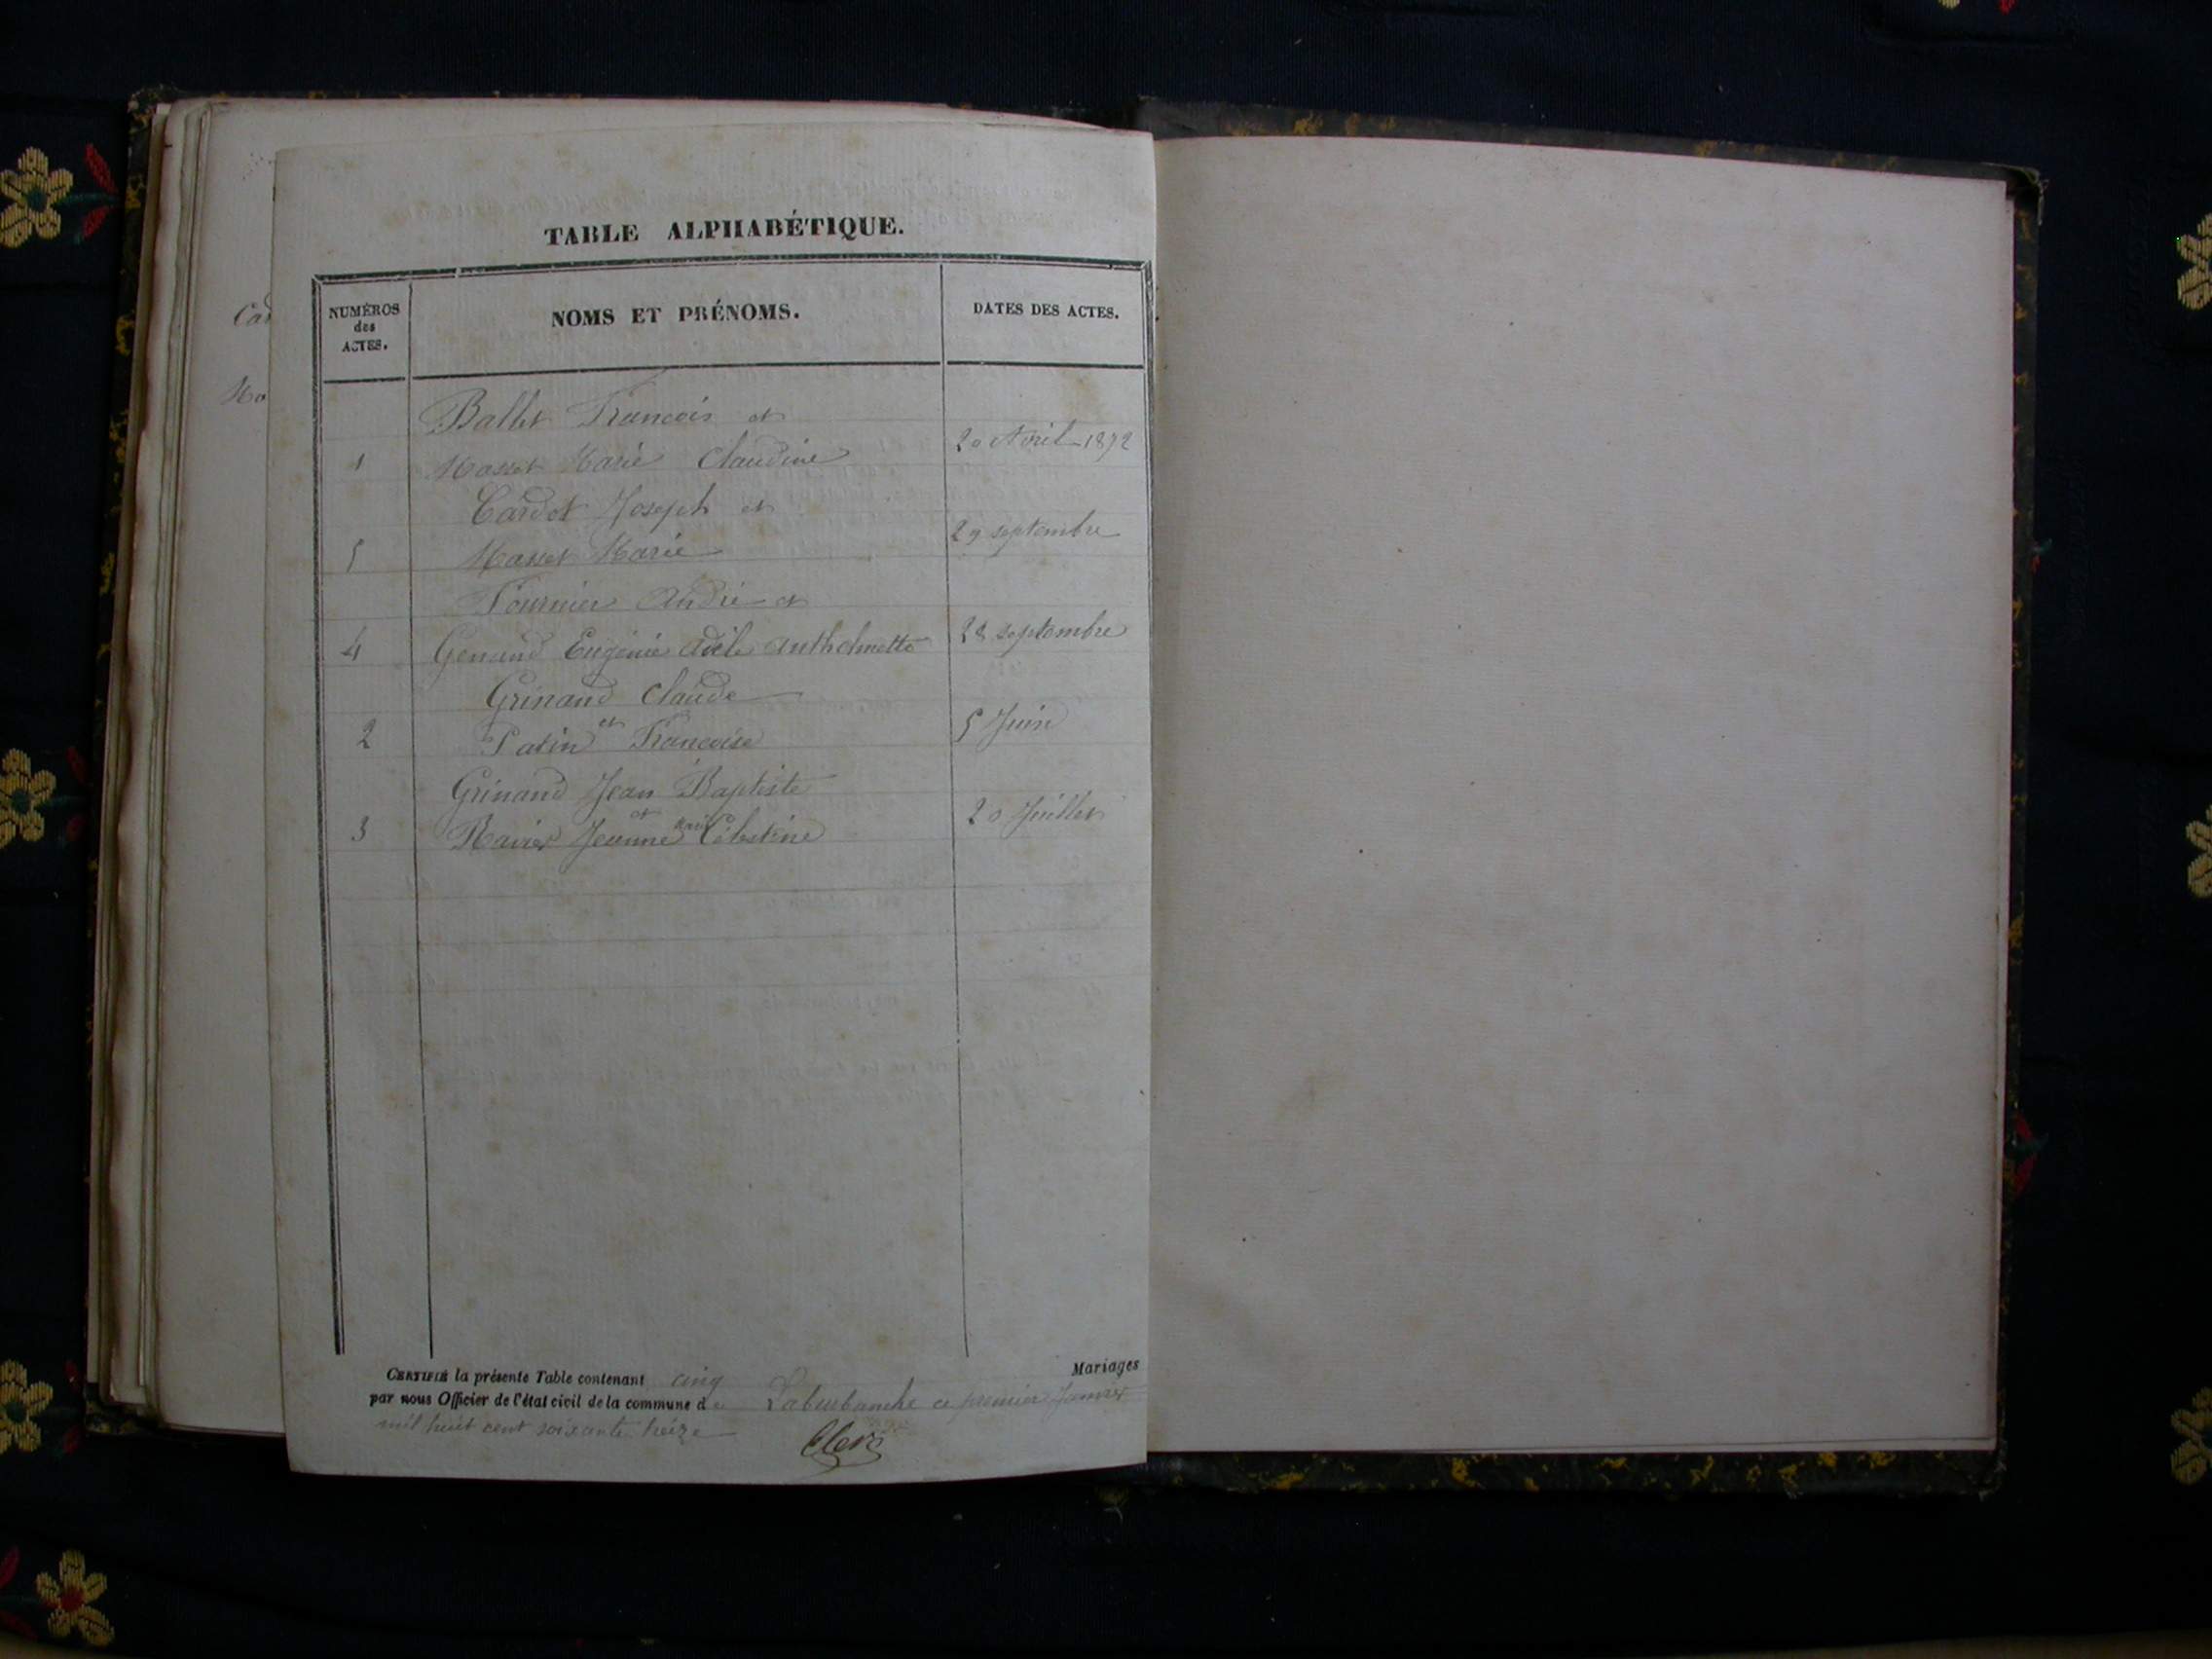 TABLE ALPHABÉTIQUE.
NUMÉROS des ACTES.
NOMS ET PRÉNOMS.
DATES DES ACTES.
Ballet Francois et
1 Masset Marie Claudine 20 Avril 1872
Cardot Joseph et
5 Masset Marie 29 septembre
Fournier André et
4 Genand Eugénie Adèle Antholmette 28 septembre
Grinand Claude
2 et Patin Francoise 5 Juin
Grinand Jean Baptiste
3 et Ravier Jeanne Marie Célestine 20 Juillet
CERTIFIÉ la présente Table contenant cinq Mariages
par nous Officier de l'état civil de la commune de ce premier Janvier
mil huit cent soixante treize
Car
Ma